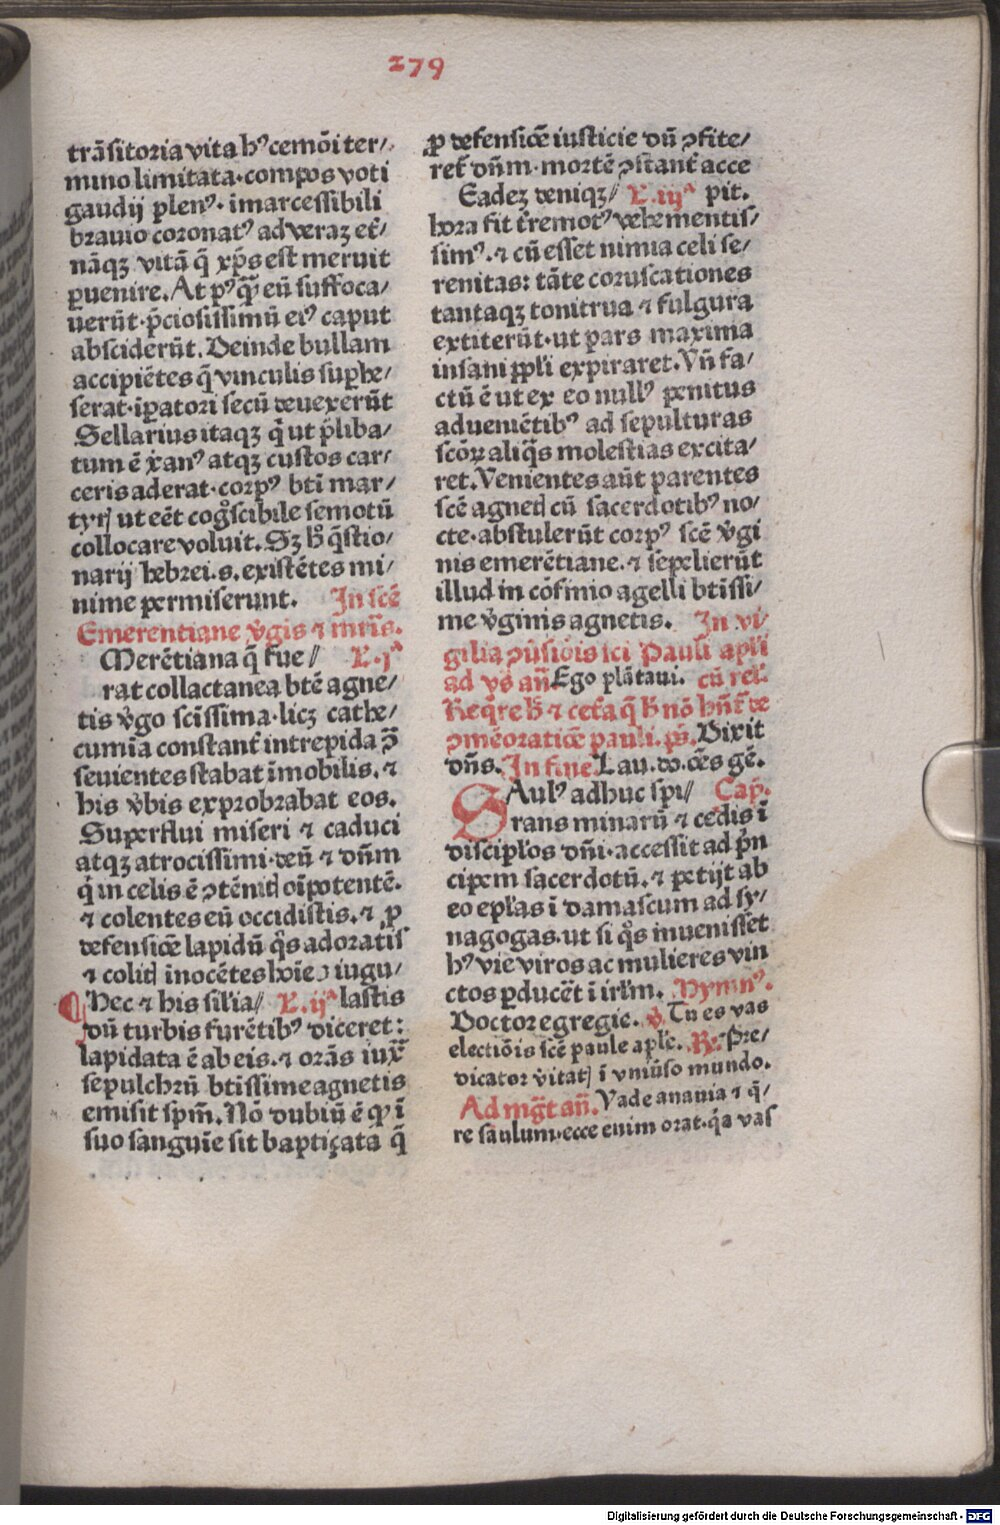 279
trãſitoria vita hꝰ cemõi ter⸗
mino limitata· compos voti
gaudij plenꝰ· imarceſſibili
brauio coronatꝰ ad veraꝫ et̃⸗
nãqꝫ vitã q̃ xp̃s eſt meruit
ꝑuenire. At pꝰq̃ꝫ eũ ſuffoca⸗
uerũt· p̃cioſiſſimũ eiꝰ caput
abſciderũt. Deinde bullam
accipiẽtes q̃ vinculis ſuꝑhe⸗
ſerat· iꝑatori ſecũ deuexerũt
Sellarius itaqꝫ q̃ ut p̃liba⸗
tum ẽ x̃anꝰ atqꝫ cuſtos car⸗
ceris aderat· corpꝰ bti mar⸗
tyrꝭ ut eẽt cogͦſcibile ſemotũ
collocare voluit. Sꝫ h̾ q̃ſtio⸗
narij hebrei.s. exiſtẽtes mi⸗
nime permiſerunt. In ſcẽ
Emerentiane v̾gis ⁊ mr̃is.
Merẽtiana q̃ fue⸗ L.jᵃ
rat collactanea btẽ agne⸗
tis v̾go ſcĩſſima· licꝫ cathe⸗
cumĩa conſtant̃ intrepida p̃
ſeuientes ſtabat ĩmobilis. ⁊
his v̾bis exprobrabat eos.
Superflui miſeri ⁊ caduci
atqꝫ atrociſſimi· deũ ⁊ dñm
q̃ in celis ẽ ↄtẽnitꝭ oĩpotentẽ.
⁊ colentes eũ occidiſtis. ⁊ ꝓ
defenſiõe lapidũ q̃s adoratis
⁊ colitꝭ ĩnocẽtes hoĩes iugu⸗
Hec ⁊ his ſilia⸗ L.ijᵃ laſtis
dũ turbis furẽtibꝰ diceret:
lapidata ẽ ab eis. ⁊ orãs iux̃
ſepulchrũ btiſſime agnetis
emiſit ſpm̃. Nõ dubiũ ẽ qꝙ ĩ
ſuo ſanguĩe ſit baptiçata q̃
ꝓ defenſiõe iuſticie dũ ↄfite⸗
ret̃ dñm· mortẽ ↄſtant̃ acce
Eadeꝫ deniqꝫ⸗ L.iijᵃ pit.
hora fit t̃remotꝰ vehementiſ⸗
ſimꝰ. ⁊ cũ eſſet nimia celi ſe⸗
renitas: tãte coruſcationes
tantaqꝫ tonitrua ⁊ fulgura
extiterũt· ut pars maxima
inſani ppl̃i expiraret. Vñ fa⸗
ctũ ẽ ut ex eo nullꝰ penitus
adueniẽtibꝰ ad ſepulturas
ſcõꝝ aliq̃s moleſtias excita⸗
ret. Venientes aũt parentes
ſcẽ agnetꝭ cũ ſacerdotibꝰ no⸗
cte· abſtulerũt corpꝰ ſcẽ v̾gi
nis emerẽtiane. ⁊ ſepelierũt
illud in cõfinio agelli btiſſi⸗
me v̾ginis agnetis. In vi⸗
gilia ↄũſiõis ſci Pauli apl̃i
ad vs̃ añ. Ego plãtaui. cũ rel̃.
Req̃re h̾ ⁊ cet̃a q̃ h̾ nõ hñt̃ de
ↄmẽoratiõe pauli. ps̃. Dixit
dñs. In fine. Lau. do. oẽs gẽ.
SAulꝰ adhuc ſpi⸗ Cap̃.
rans minarũ ⁊ cedis ĩ
diſcipl̃os dñi· acceſſit ad p̃n
cipem ſacerdotũ. ⁊ petijt ab
eo epl̃as ĩ damaſcum ad ſy⸗
nagogas. ut ſi q̃s inueniſſet
hꝰ vie viros ac mulieres vin
ctos ꝑducẽt ĩ irl̃m. Hymnꝰ.
Doctor egregie. ℣ Tu es vas
electiõis ſcẽ paule apl̃e. ℞. Pre⸗
dicator v̾itatꝭ ĩ vniũſo mundo.
Ad mg̃t añ. Vade anania ⁊ q̃⸗
re ſaulum· ecce enim orat· q̃a vas
Digitalisierung gefördert durch die Deutsche Forschungsgemeinschaft - DFG